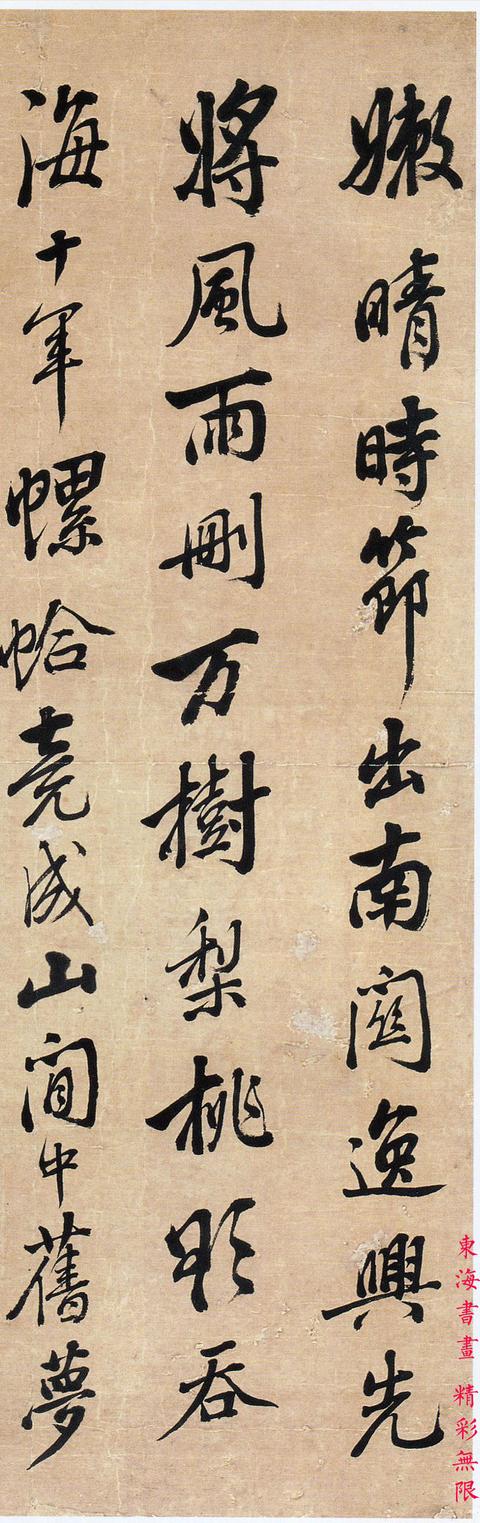 嫩晴時節出南關逸興先
將風雨刪万樹梨桃吞
海十年螺蛤竟成山間中舊夢
東海書畫 精彩無限